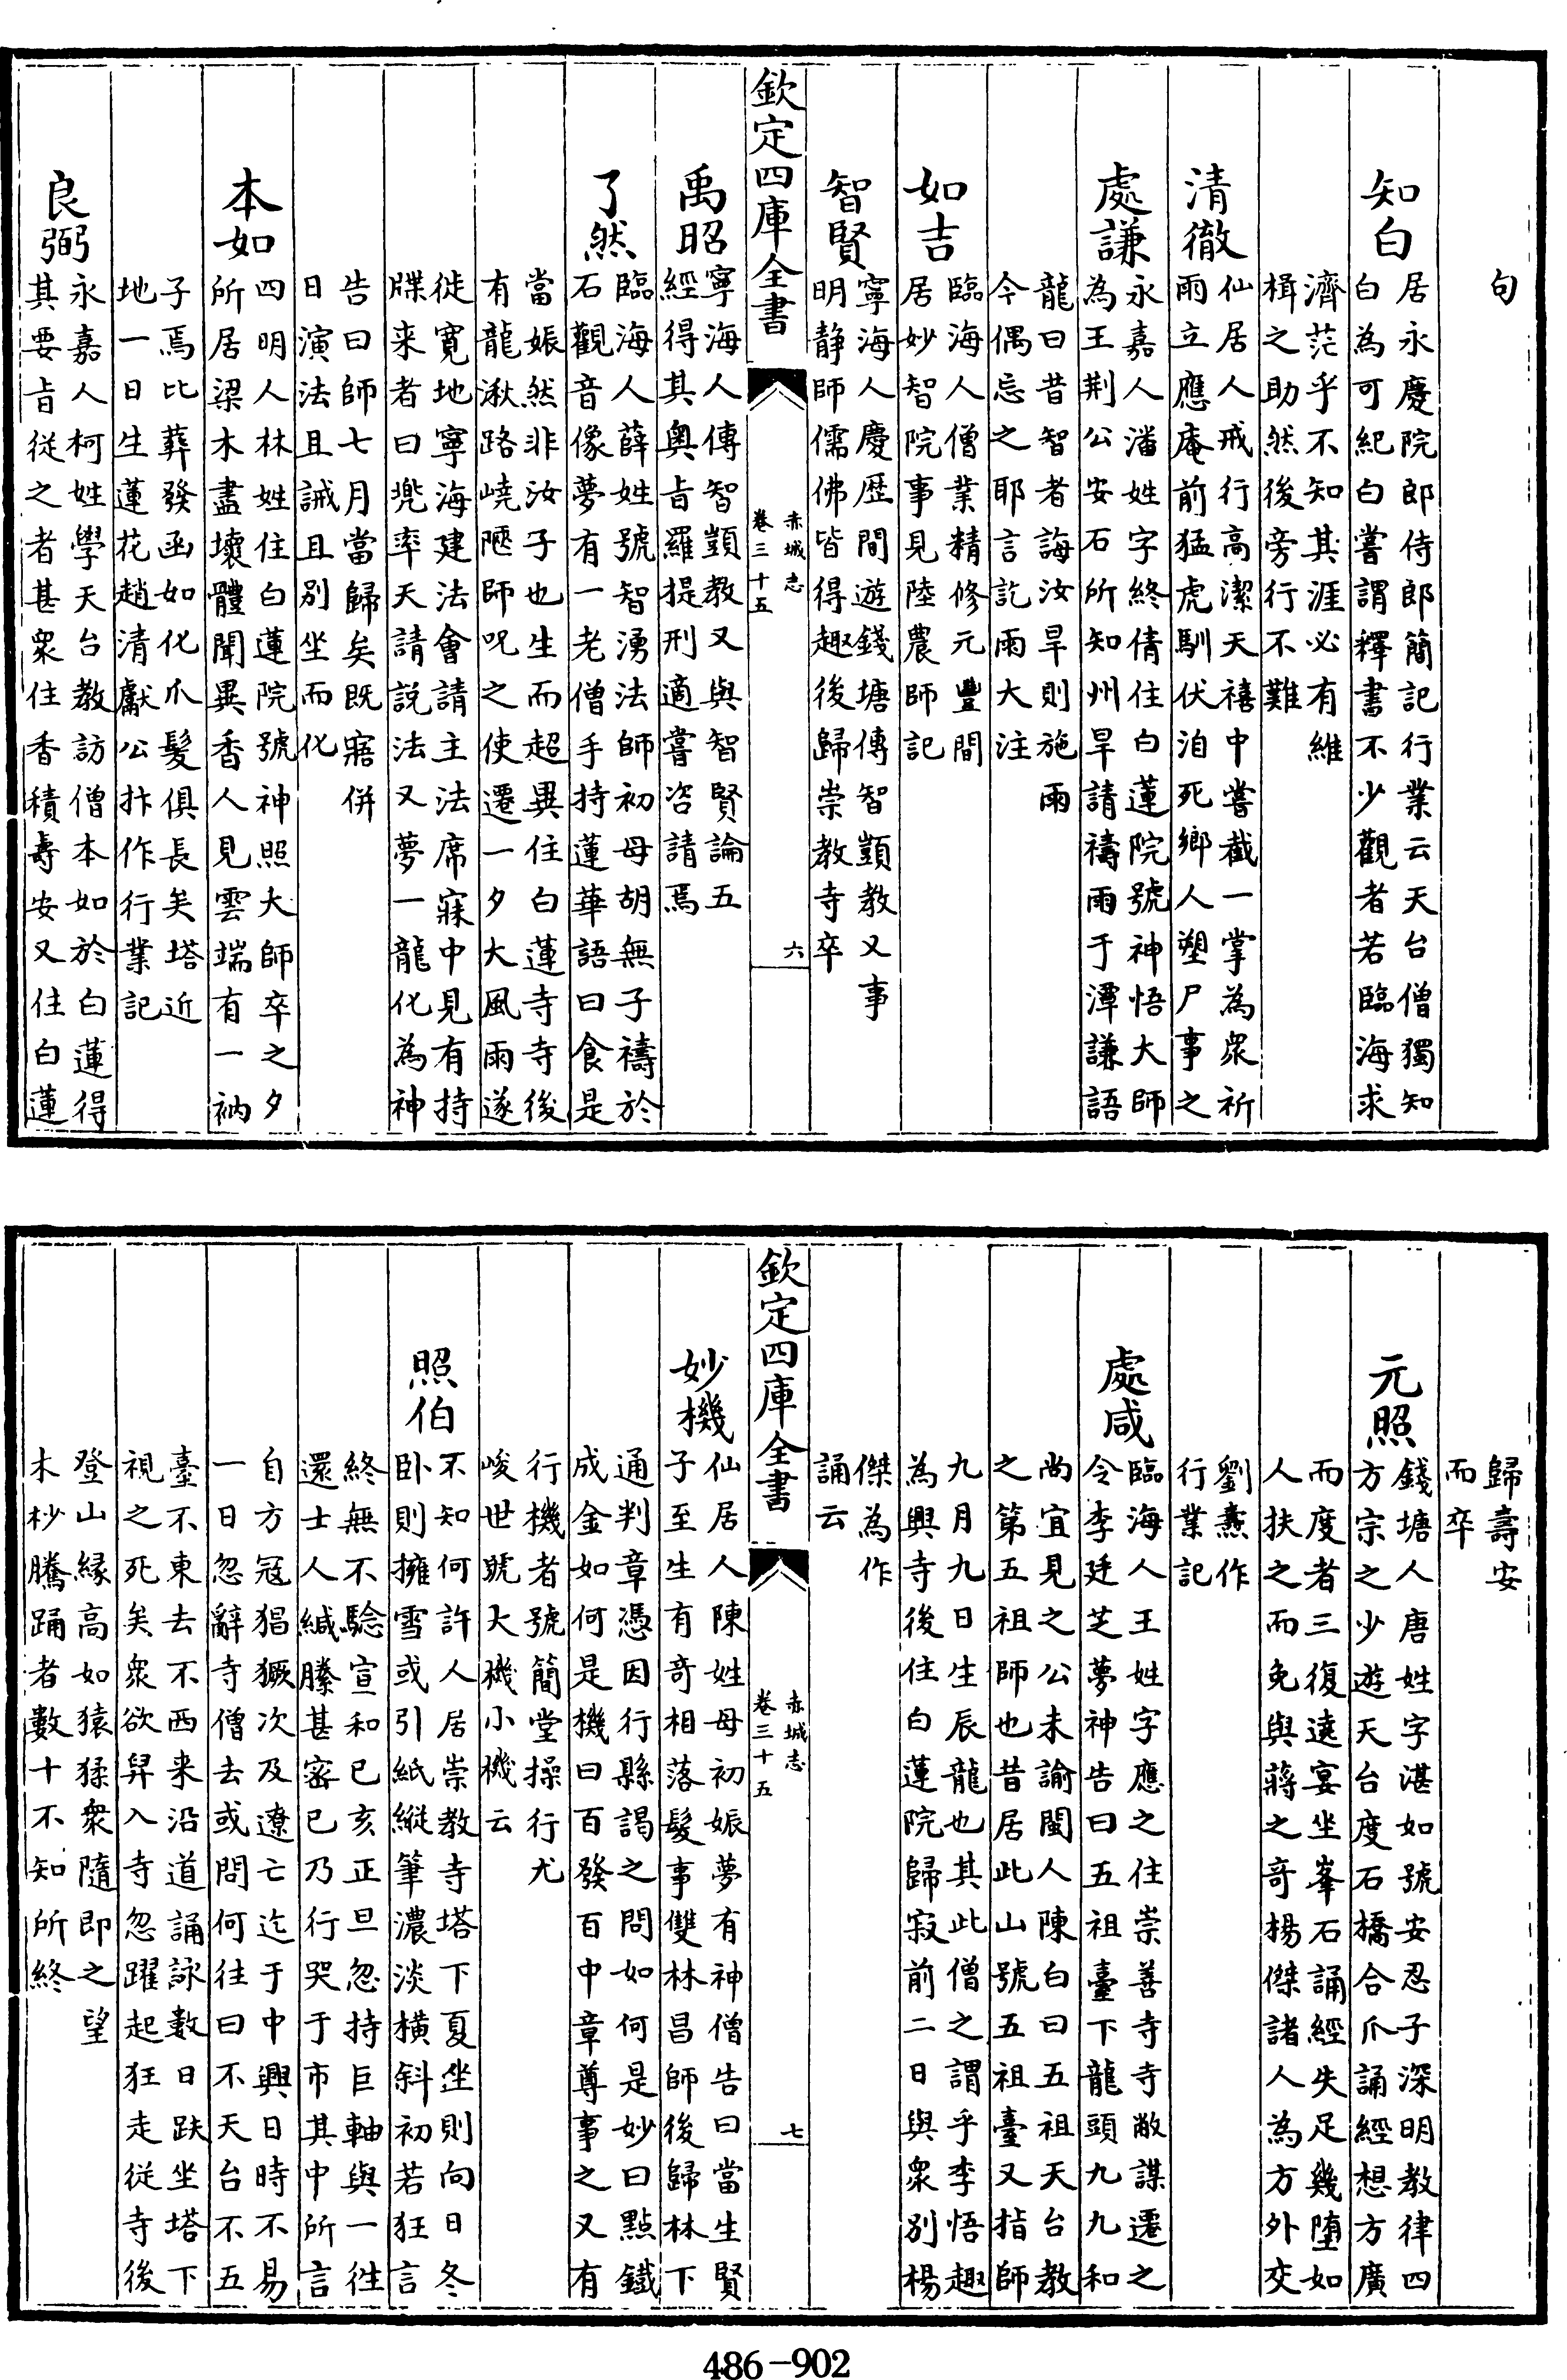 句
知白
居永慶院郎侍郎簡記行業云天台僧獨知
白為可紀白嘗謂釋書不少觀者若臨海求
濟茫乎不知其涯必有維
楫之助然後旁行不難
清徹
仙居人戒行高潔天禧中嘗截一掌為衆祈
雨立應庵前猛虎馴伏洎死鄉人塑尸事之
處謙
永嘉人潘姓字終倩住白蓮院號神悟大師
為王荆公安石所知州旱請禱雨于潭謙語
龍曰昔智者誨汝旱則施雨
今偶忘之耶言訖雨大注
如吉
臨海人僧業精修元豐間
居妙智院事見陸農師記
智賢
寧海人慶歴間遊錢塘傳智顗教又事
明静師儒佛皆得趣後歸崇教寺卒
欽定四庫全書
赤城志
卷三十五
六
禹昭
寧海人傳智顗教又與智賢論五
經得其奥旨羅提刑適嘗咨請焉
了然
臨海人薛姓號智湧法師初母胡無子禱於
石觀音像夢有一老僧手持蓮華語曰食是
當娠然非汝子也生而超異住白蓮寺寺後
有龍湫路嶢陋師呪之使遷一夕大風雨遂
徙寛地寧海建法會請主法席寐中見有持
牒来者曰兠率天請説法又夢一龍化為神
告曰師七月當歸矣既寤併
日演法且誡且别坐而化
本如
四明人林姓住白蓮院號神照大師卒之夕
所居梁木盡壞體聞異香人見雲端有一衲
子焉比葬發函如化爪髮俱長矣塔近
地一日生蓮花趙清獻公抃作行業記
良弼
永嘉人柯姓學天台教訪僧本如於白蓮得
其要旨従之者甚衆住香積壽安又住白蓮
歸壽安
而卒
元照
錢塘人唐姓字湛如號安忍子深明教律四
方宗之少遊天台度石橋合爪誦經想方廣
而度者三復遠宴坐峯石誦經失足幾墮如
人扶之而免與蔣之奇楊傑諸人為方外交
劉燾作
行業記
處咸
臨海人王姓字應之住崇善寺寺敝謀遷之
令李廷芝夢神告曰五祖臺下龍頭九九和
尚宜見之公未諭閩人陳白曰五祖天台教
之第五祖師也昔居此山號五祖臺又指師
九月九日生辰龍也其此僧之謂乎李悟趣
為興寺後住白蓮院歸寂前二日與衆别楊
傑為作
誦云
欽定四庫全書
赤城志
卷三十五
七
妙機
仙居人陳姓母初娠夢有神僧告曰當生賢
子至生有奇相落髮事雙林昌師後歸林下
通判章憑因行縣謁之問如何是妙曰點鐵
成金如何是機曰百發百中章尊事之又有
行機者號簡堂操行尤
峻世號大機小機云
照伯
不知何許人居崇教寺塔下夏坐則向日冬
卧則擁雪或引紙縱筆濃淡横斜初若狂言
終無不驗宣和己亥正旦忽持巨軸與一徃
還士人緘縢甚密已乃行哭于市其中所言
自方冠猖獗次及遼亡迄于中興日時不易
一日忽辭寺僧去或問何往曰不天台不五
臺不東去不西来沿道誦詠數日趺坐塔下
視之死矣衆欲舁入寺忽躍起狂走従寺後
登山縁高如猿猱衆隨即之望
木杪騰踊者數十不知所終
486-902